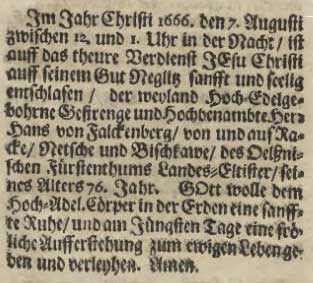 Im Jahr Christi 1666. den 7. Augusti
zwischen 12. und 1. Uhr in der Nacht / ist
auff das theure Verdienst JEsu Christi
auff seinem Gut Neglitz sanfft und seelig
entschlafen / der weyland Hoch-Edelge-
bohrne Gestrenge und Hochbenambte Herr
Hans von Falckenberg / von und auf Ra-
cke / Netsche und Bischkawe / des Oelßni-
schen Fürstenthums Landes-Eltister / sei-
nes Alters 76. Jahr. GOtt wolle dem
Hoch-Adel. Cörper in der Erden eine sanff-
te Ruhe / und am Jüngsten Tage eine frö-
liche Aufferstehung zum ewigen Leben ge-
ben und verleyhen. Amen.